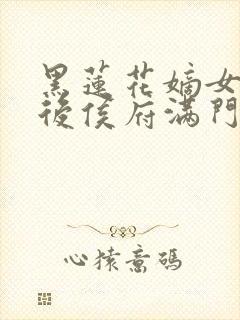 黑蓮花嫡女
後侯府滿門
心猿意碼